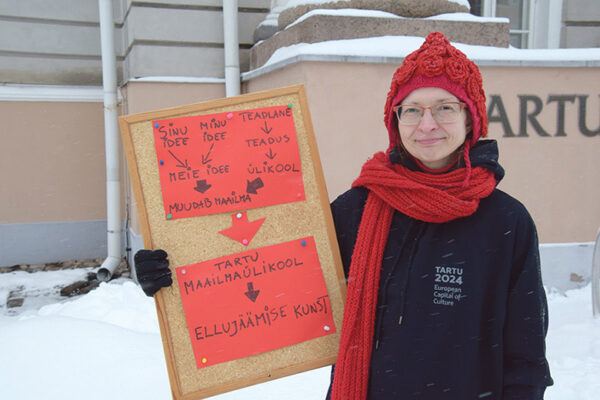 SINU MINU TEADLANE
IDEE IDEE
TEADUS
MEIE IDEE ÜLIKOOL
MUUDAB MAAILMA
TARTU,
MAAILMAÜLIKOOL
ELLUJÄÄMISE KUNST
TARTU
TARTU
2024
European
Capital of
Culture